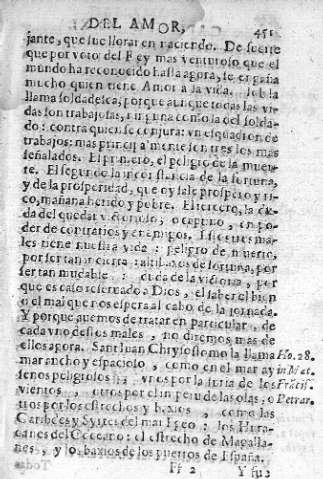 DEL AMOR, 451
jante, que fue llorar en naciendo. De suerte
que por voto del Rey mas venturoso que el
mundo ha reconocido hasta agora, se engaña
mucho quien tiene Amor a la vida. Job la
llama soldadesca, porque aunque todas las vi-
das son trabajosas, ninguna como la del solda-
do: contra quien se conjura un esquadron de
trabajos: mas principalmente son tres los mas
señalados. El primero, el peligro de la muer-
te. El segundo la inconstancia de la fortuna,
y de la prosperidad, que oy sale prospero y ri-
co, mañana herido y pobre. El tercero, la du-
da del quedar victorioso, o cautivo, en po-
der de contrarios y enemigos. Estos tres ma-
les tiene nuestra vida: peligro de muerte,
por ser tan incierta: altibaxos de fortuna, por
ser tan mudable: duda de la victoria, por
que es caso reservado a Dios, el saber el bien
o el mal que nos espera al cabo de la jornada.
Y porque avemos de tratar en particular, de
cada vno destos males, no diremos mas de
ellos agora. San Juan Chrysostomo la llama Ho. 28.
mar ancho y espacioso, como en el mar ay in Mat.
senos peligrosos: vnos por la furia de los Fracis.
vientos, otros por el impetu de las olas; o Petrar.
otros por los estrechos y baxios, como las
Caribdes y Syrtes del mar Egeo: los Hura-
canes del Occeano: el estrecho de Magalla-
nes, y los baxios de los puertos de España.
Ff 2 Y su